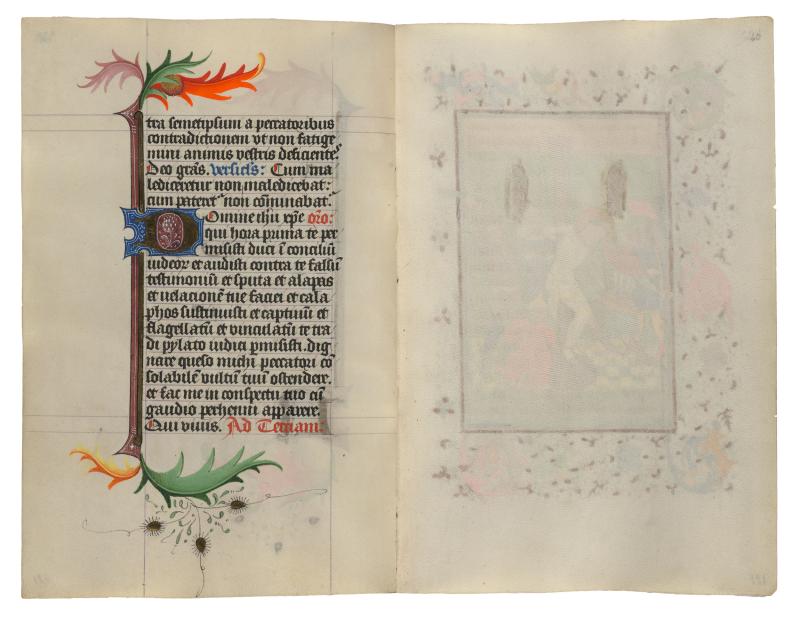 tra semetipsum a peccatoribus
contradictionem vt non fatige
mini animis vestris deficientes
Deo gras. versicls: Cum ma
lediceretur non maledicebat:
cum pateret non cominabat.
Domine ihu xpe oro:
qui hora prima te per
misisti duci i conciliu
iudeor et audisti contra te falsu
testimoniu et sputa et alapas
et velacione tue faciei et cala
phos sustinuisti et captiuu et
flagellatu et vinculatu te tra
di pylato iudici pmisisti. dig
nare queso michi peccatori co
solabile vultu tuu ostendere.
et fac me in conspectu tuo cu
gaudio perhenni apparere.
Qui viuis. Ad Terciam: